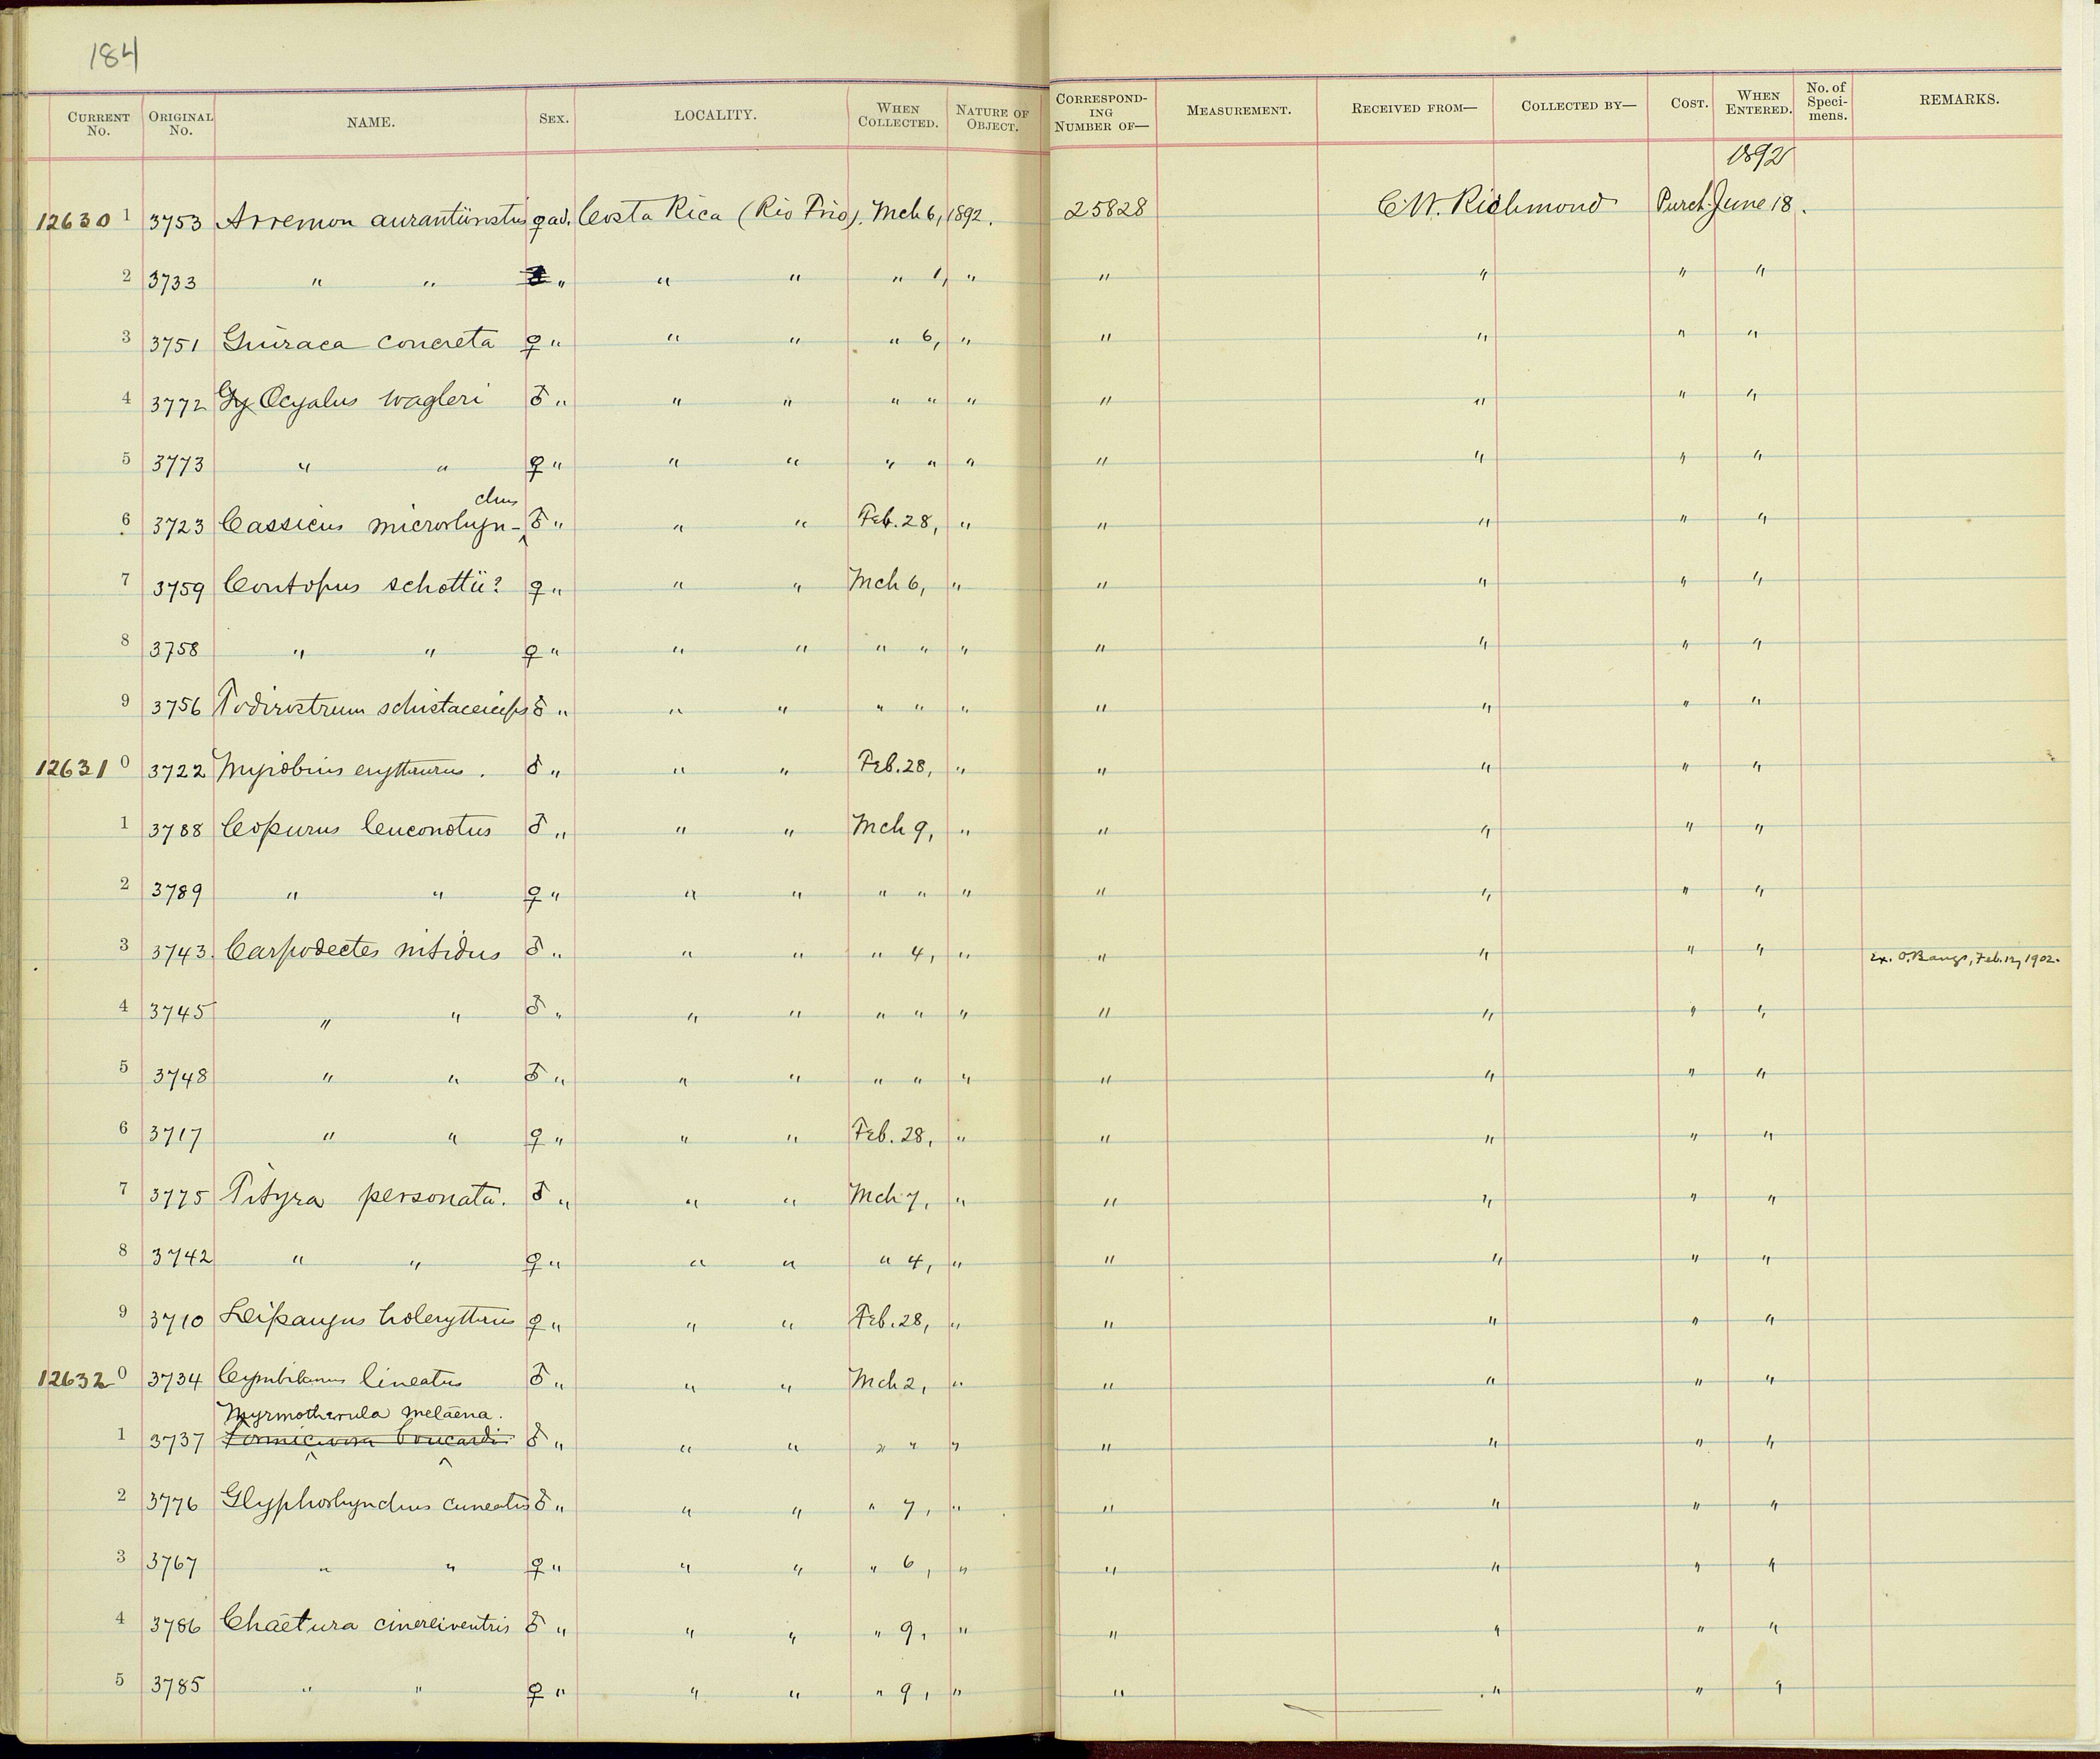 184
CURRENT No. ORIGINAL No. NAME. SEX. LOCALITY. WHEN COLLECTED. NATURE OF OBJECT. CORRESPONDING NUMBER OF— MEASUREMENT. RECEIVED FROM— COLLECTED BY— COST. WHEN ENTERED. No. of Specimens. REMARKS.
1892
12630 1 3753 Arremon aurantiirostris ♀ ad. Costa Rica (Rio Frio). Mch 6, 1892. 25828 C.W. Richmond Purch. June 18.
2 3733 " " " " " " 1, " " " " "
3 3751 Guiraca concreta ♀ " " " " 6, " " " " "
4 3772 Gy Ocyalus wagleri ♂ " " " " " " " " " "
5 3773 " " ♀ " " " " " " " " " "
6 3723 Cassicus microrhyn-chus ♂ " " " Feb. 28, " " " " "
7 3759 Contopus schottii? ♀ " " " Mch 6, " " " " "
8 3758 " " ♀ " " " " " " " " " "
9 3756 Todirostrum schistaceiceps ♂ " " " " " " " " " "
12631 0 3722 Myiobius erythrurus. ♂ " " " Feb. 28, " " " " "
1 3788 Copurus leuconotus ♂ " " " Mch 9, " " " " "
2 3789 " " ♀ " " " " " " " " " "
3 3743. Carpodectes nitidus ♂ " " " " 4, " " " " " Ex. O. Bangs, Feb. 12, 1902.
4 3745 " " ♂ " " " " " " " " " "
5 3748 " " ♂ " " " " " " " " " "
6 3717 " " ♀ " " " Feb. 28, " " " " "
7 3775 Tityra personata. ♂ " " " Mch 7, " " " " "
8 3742 " " ♀ " " " " 4, " " " " "
9 3710 Leipaugus holerythrus ♀ " " " Feb. 28, " " " " "
12632 0 3734 Cymbilanius lineatus ♂ " " " Mch 2, " " " " "
Myrmotherula melaena.
1 3737 Formicivora boucardi ♂ " " " " " " " " " "
2 3776 Glyphorhynchus cuneatus ♂ " " " " 7, " " " " "
3 3767 " " ♀ " " " " 6, " " " " "
4 3786 Chaetura cinereiventris ♂ " " " " 9, " " " " "
5 3785 " " ♀ " " " " 9, " " " " "